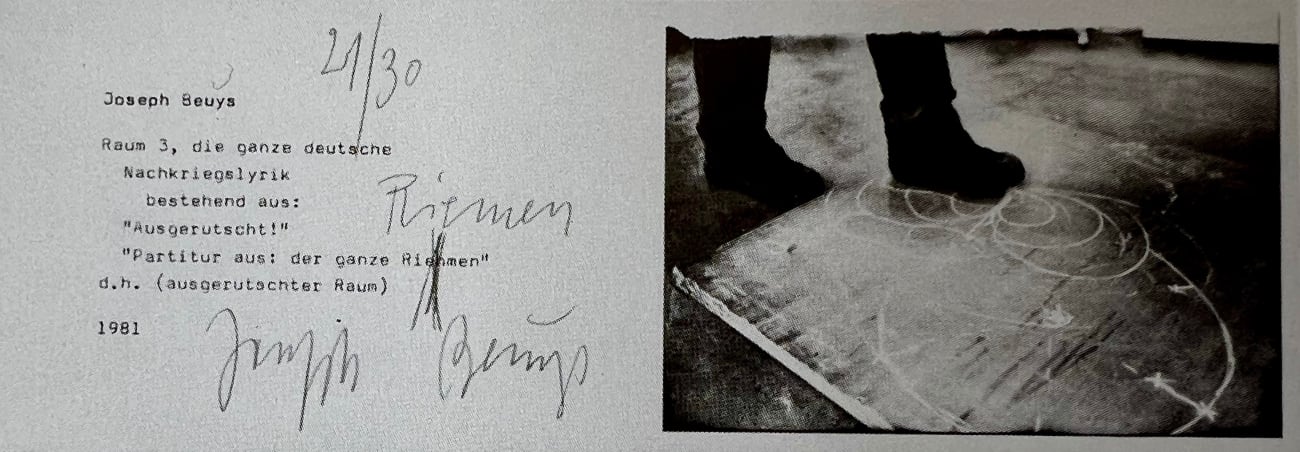 21/30
Joseph Beuys
Raum 3, die ganze deutsche
Nachkriegslyrik
bestehend aus:
Riemen
"Ausgerutscht!"
"Partitur aus: der ganze Riehmen"
d.h. (ausgerutschter Raum)
1981
Joseph Beuys